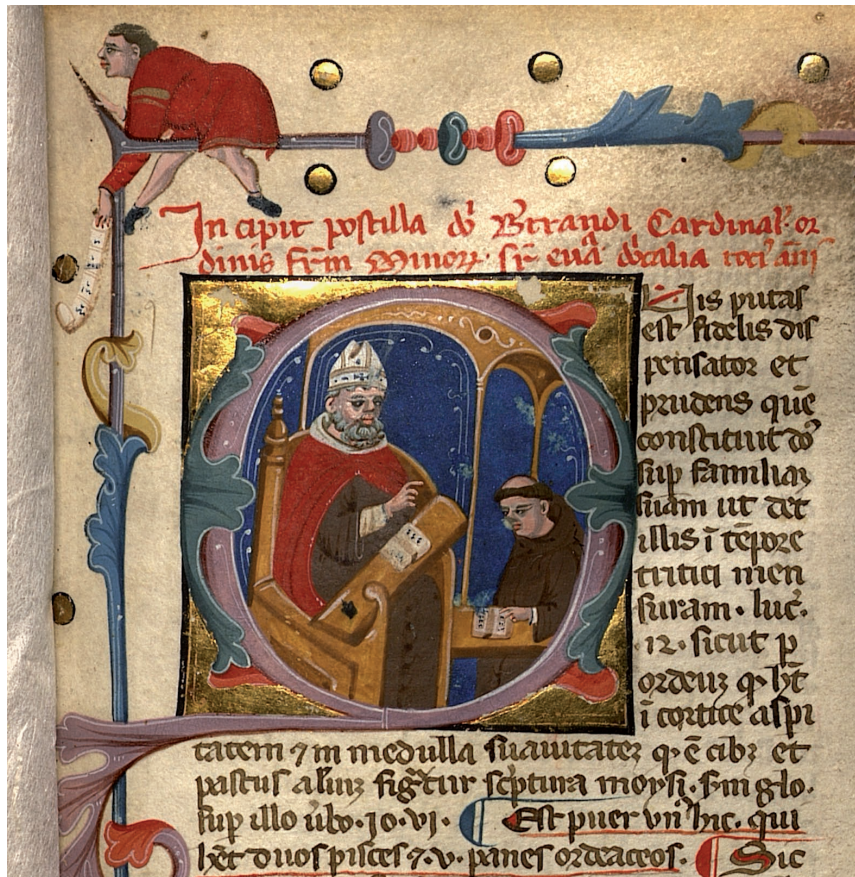 Incipit postilla dñi Btrandi Cardinal. or
dinis frm Minorꝝ. sr euã dñicalia toci' anñi
Uis putas
est fidelis dis
pensator et
prudens quē
constituit dñs
sup familiaꝫ
suam ut det
illis ī tēpore
tritici men
suram. luc̄.
12. sicut p
ordeuꝫ q̇ hꝫt
ī cortice aspi
tatem ⁊ in medulla suauitateꝫ q̇ ē cibꝫ et
pastus aīuꝫ figͣtur sc̄ptura moysi. s̄m glo.
sup illo ūbo. Jo. vi. Est puer vn' hic. qui
hꝫt duos pisces ⁊ .v. panes ordeaceos. Sic